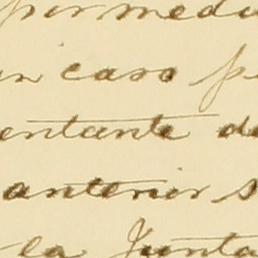 por medi
un caso p
entante de
anterior s
la Junta